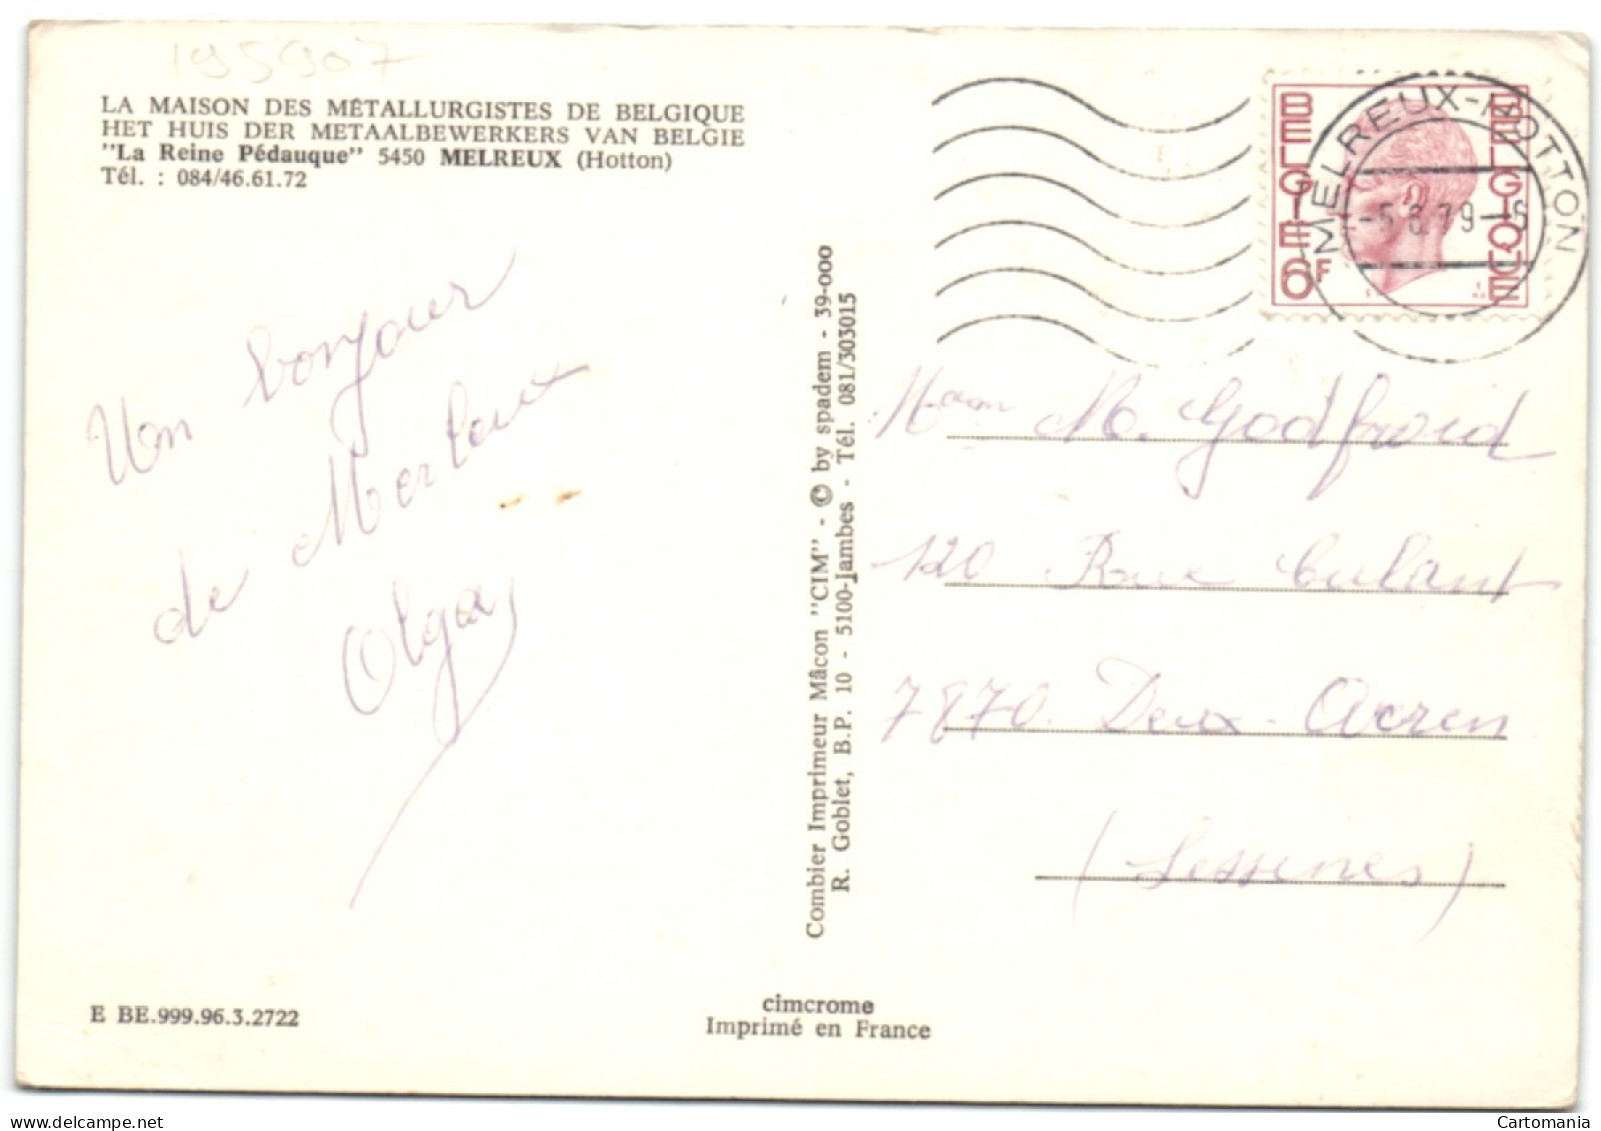 195907
LA MAISON DES MÉTALLURGISTES DE BELGIQUE
HET HUIS DER METAALBEWERKERS VAN BELGIE
"La Reine Pédauque" 5450 MELREUX (Hotton)
Tél. : 084/46.61.72
Un bonjour
de
Olga
E BE.999.96.3.2722
Combier Imprimeur Mâcon "CIM" - © by spadem - 39-000
R. Goblet, B.P. 10 - 5100-Jambes - Tél. 081/303015
cimcrome
Imprimé en France
BELGIE
BELGIQUE
6F
MELREUX-HOTTON
M. Godfroid
120 Rue Culant
7870 Deux-Acren
(Lessines)
Cartomania